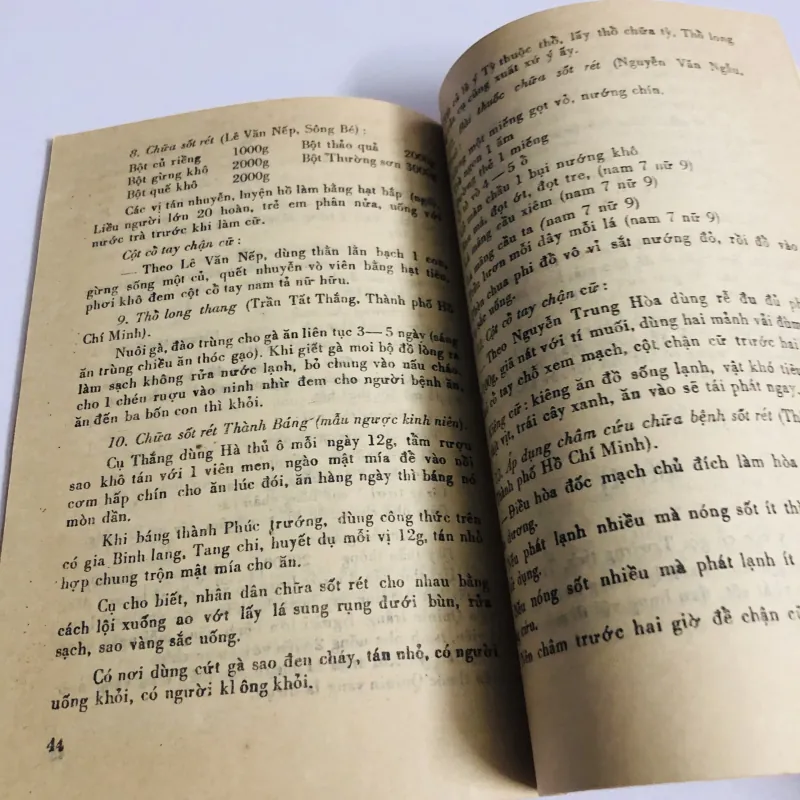 8. Chữa sốt rét (Lê Văn Nếp, Sông Bé) :
Bột củ riềng 1000g Bột thảo quả
Bột gừng khô 2000g Bột Thường sơn 3000g
Bột quế khô 2000g
Các vị tán nhuyễn, luyện hồ làm bằng hạt bắp (ngô)
Liều người lớn 20 hoàn, trẻ em phân nửa, uống với
nước trà trước khi làm cữ.
Cột cổ tay chận cữ :
— Theo Lê Văn Nếp, dùng thằn lằn bạch 1 con,
gừng sống một củ, quết nhuyễn vò viên bằng hạt tiêu,
phơi khô đem cột cổ tay nam tả nữ hữu.
9. Thổ long thang (Trần Tất Thắng, Thành phố Hồ
Chí Minh).
Nuôi gà, đào trùng cho gà ăn liên tục 3—5 ngày (sáng
ăn trùng chiều ăn thóc gạo). Khi giết gà moi bộ đồ lòng ra
làm sạch không rửa nước lạnh, bỏ chung vào nấu cháo,
cho 1 chén rượu vào ninh nhừ đem cho người bệnh ăn,
ăn đến ba bốn con thì khỏi.
10. Chữa sốt rét Thành Báng (mẫu ngược kinh niên).
Cụ Thắng dùng Hà thủ ô mỗi ngày 12g, tẩm rượu
sao khô tán với 1 viên men, ngào mật mía để vào nồi
cơm hấp chín cho ăn lúc đói, ăn hàng ngày thì báng nó
mòn dần.
Khi báng thành Phúc trướng, dùng công thức trên
có gia Binh lang, Tang chi, huyết dụ mỗi vị 12g, tán nhỏ
hợp chung trộn mật mía cho ăn.
Cụ cho biết, nhân dân chữa sốt rét cho nhau bằng
cách lội xuống ao vớt lấy lá sung rụng dưới bùn, rửa
sạch, sao vàng sắc uống.
Có nơi dùng cứt gà sao đen cháy, tán nhỏ, có người
uống khỏi, có người kl ông khỏi.
44
là ý Tỳ thuộc thổ, lấy thổ chữa tỳ, Thổ long
cũng xuất xứ ý ấy.
thuốc chữa sốt rét (Nguyễn Văn Ngẫu,
một miếng gọt vỏ, nướng chín.
ngọn 1 ấm
thủ 1 miếng
vò 4—5 ổ
chầu 1 bụi nướng khô
đọt ớt, đọt tre, (nam 7 nữ 9)
mãng cầu xiêm (nam 7 nữ 9)
mãng cầu ta (nam 7 nữ 9)
lươn mỗi dây mỗi lá (nam 7 nữ 9)
chua phi đồ vô vỉ sắt nướng đỏ, rồi đổ vào
uống.
Cột cổ tay chận cữ :
Theo Nguyễn Trung Hòa dùng rễ đu đủ
giã nát với tí muối, dùng hai mảnh vải đùm
cổ tay chỗ xem mạch, cột chận cữ trước hai
cữ : kiêng ăn đồ sống lạnh, vật khó tiêu
vịt, trái cây xanh, ăn vào sẽ tái phát ngay.
Áp dụng châm cứu chữa bệnh sốt rét
phố Hồ Chí Minh).
— Điều hòa đốc mạch chủ đích làm hòa
dương.
phát lạnh nhiều mà nóng sốt ít thì
dụng.
nóng sốt nhiều mà phát lạnh ít
cứu.
châm trước hai giờ để chận cữ